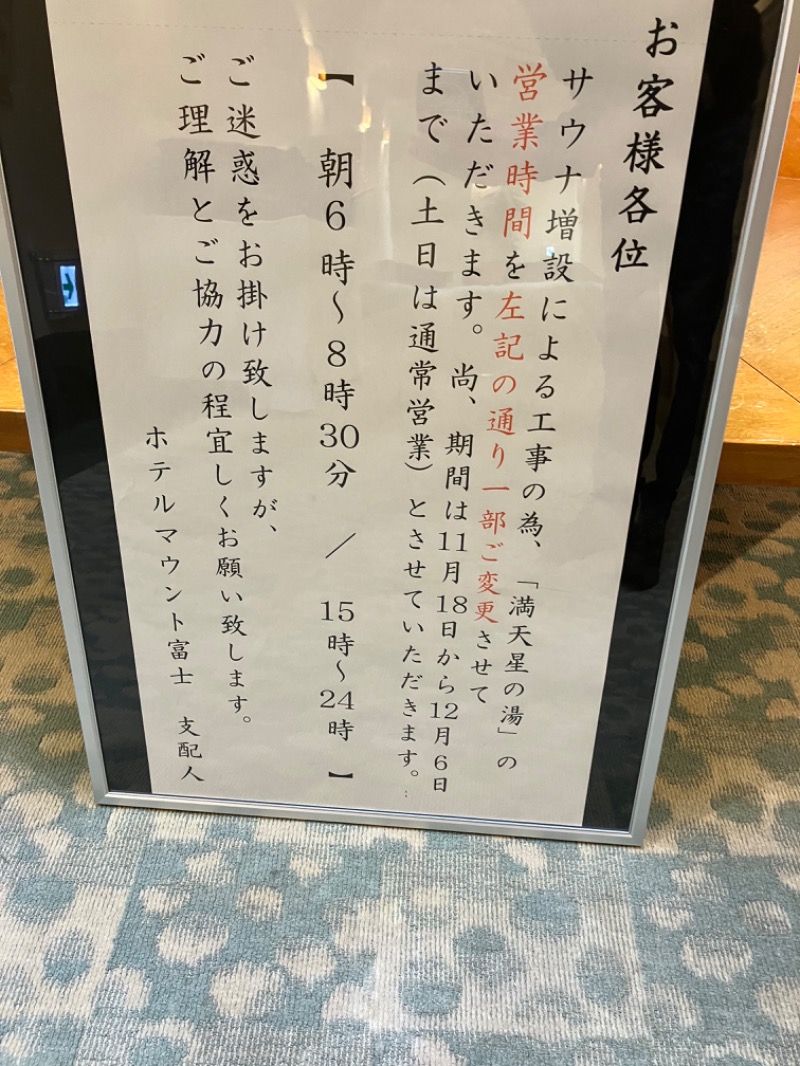 お客様各位
サウナ増設による工事の為、「満天星の湯」の
営業時間を左記の通り一部ご変更させて
いただきます。尚、期間は11月18日から12月6日
まで（土日は通常営業）とさせていただきます。
【 朝6時～8時30分 ／ 15時～24時 】
ご迷惑をお掛け致しますが、
ご理解とご協力の程宜しくお願い致します。
ホテルマウント富士 支配人